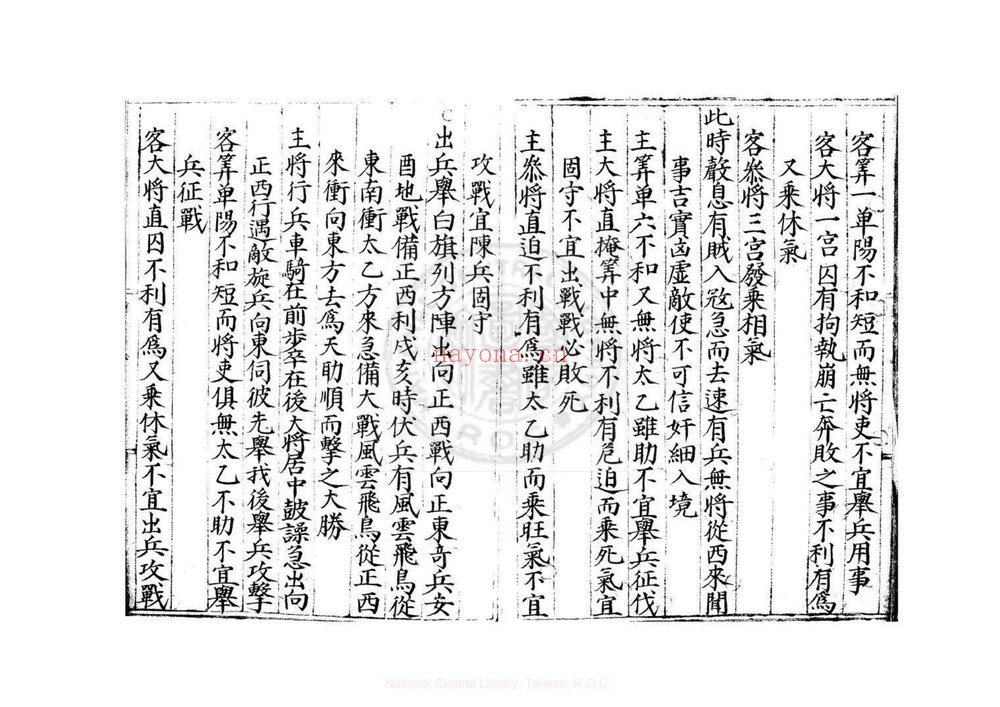 客筭一单陽不和短而無將吏不宜舉兵用事
客大將一宫囚有拘執崩亡奔敗之事不利有為
又乗休氣
客叅將三宫發乗相氣
此時聲息有賊入㓂急而去速有兵無將從西來聞
事吉實凶虛敵使不可信奸細入境
主筭单六不和又無將太乙雖助不宜舉兵征伐
主大將直掩筭中無將不利有危迫而乗死氣宜
固守不宜出戰戰必敗死
主叅將直迫不利有為雖太乙助而乗旺氣不宜
攻戰宜陳兵固守
出兵舉白旗列方陣出向正西戰向正東竒兵安
酉地戰備正西利戌亥時伏兵有風雲飛鳥從
東南衝太乙方來急備大戰風雲飛鳥從正西
來衝向東方去為天助順而擊之大勝
主將行兵車騎在前歩卒在後大將居中鼓譟急出向
正西行遇敵旋兵向東伺彼先舉我後舉兵攻擊
客筭单陽不和短而將吏俱無太乙不助不宜舉
兵征戰
客大將直囚不利有為又乗休氣不宜出兵攻戰
nayona.cn
National Central Library, Taiwan, R.O.C.